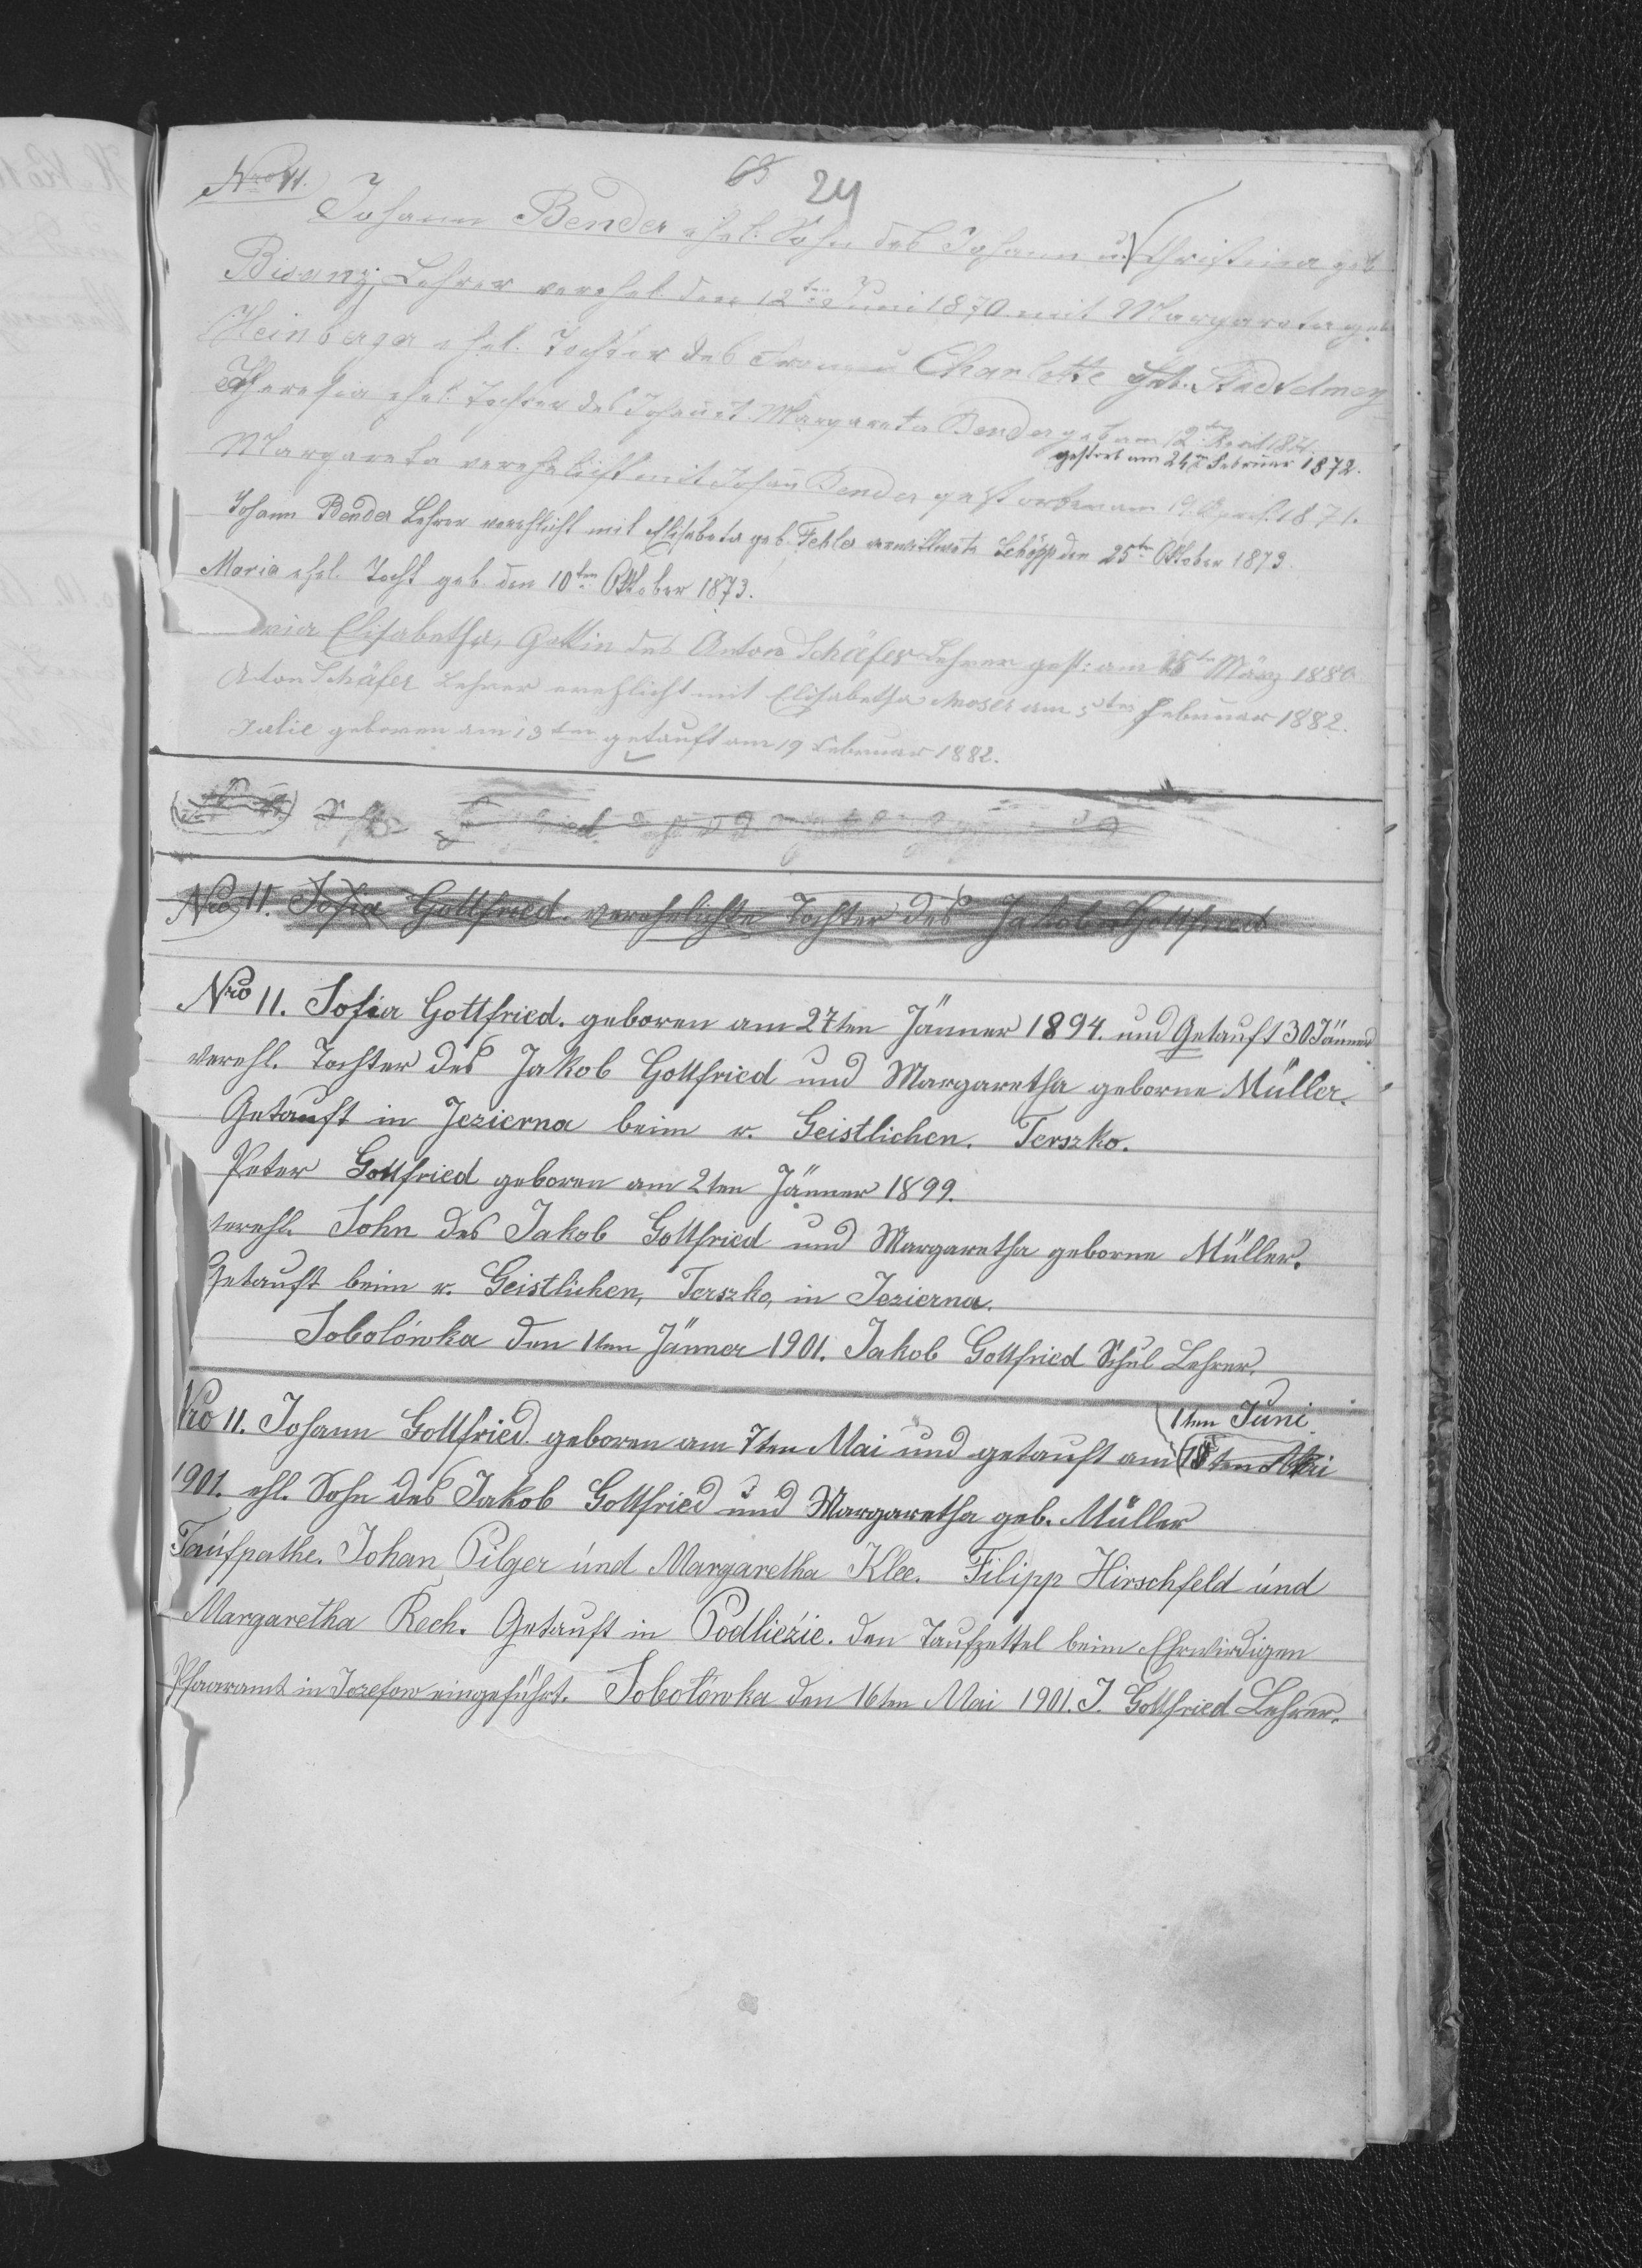 24
Nro 11.
Johann Bender ehel. Sohn des Johann u. Christina geb
Bisanz; Lehrer verehel. den 12ten Juni 1870 mit Margareta geb.
Heinberger ehel. Tochter des u Charlotte geb.
Theresia ehel. Tochter des Johann et Margareta Bender geb am 12ten April 1871.
gestorb am 24ten Februar 1872.
Margareta verehelicht mit Johan Bender gestorben am 19. April 1871.
Johann Bender Lehrer verehlicht mit Elisabeta geb. Fehler verwittwete Schöpp den 25ten Oktober 1873.
Maria ehel. Tocht geb. den 10ten Oktober 1873.
Elisabetha, Gattin des Anton Schäfer Lehrer gest: am März 1880
Aton Schäfer Lehrer verehlicht mit Elisabetha Moser am 5ten Februar 1882.
Julie geboren am 13ten getauft am 19 Februar 1882.
Nro 11. Sofia Gottfried. verehelichte Tochter des Jakob Gottfried
Nro 11. Sofia Gottfried. geboren am 27ten Jänner 1894. und Getauft 30 Jänner
verehl. Tochter des Jakob Gottfried und Margaretha geborne Müller.
Getauft in Jezierna beim r. Geistlichen. Terszko.
Peter Gottfried geboren am 2ten Jänner 1899.
verehl. Sohn des Jakob Gottfried und Margaretha geborne Müller.
Getauft beim r. Geistlichen, Terszko, in Jezierna.
Sobolówka den 1ten Jänner 1901. Jakob Gottfried Schul Lehrer.
1ten Juni
Nro 11. Johann Gottfried geboren am 7ten Mai und getauft am 18ten Mai
1901. ehl. Sohn des Jakob Gottfried und Margaretha geb. Müller
Taufpathe. Johan Pilger und Margaretha Klee. Filipp Hirschfeld und
Margaretha Rech. Getauft in Podliezie. den Taufzettel beim Ehrwirdigen
Pfaaramt in Jozefow eingeführt. Sobolówka den 16ten Mai 1901. J. Gottfried Lehrer.